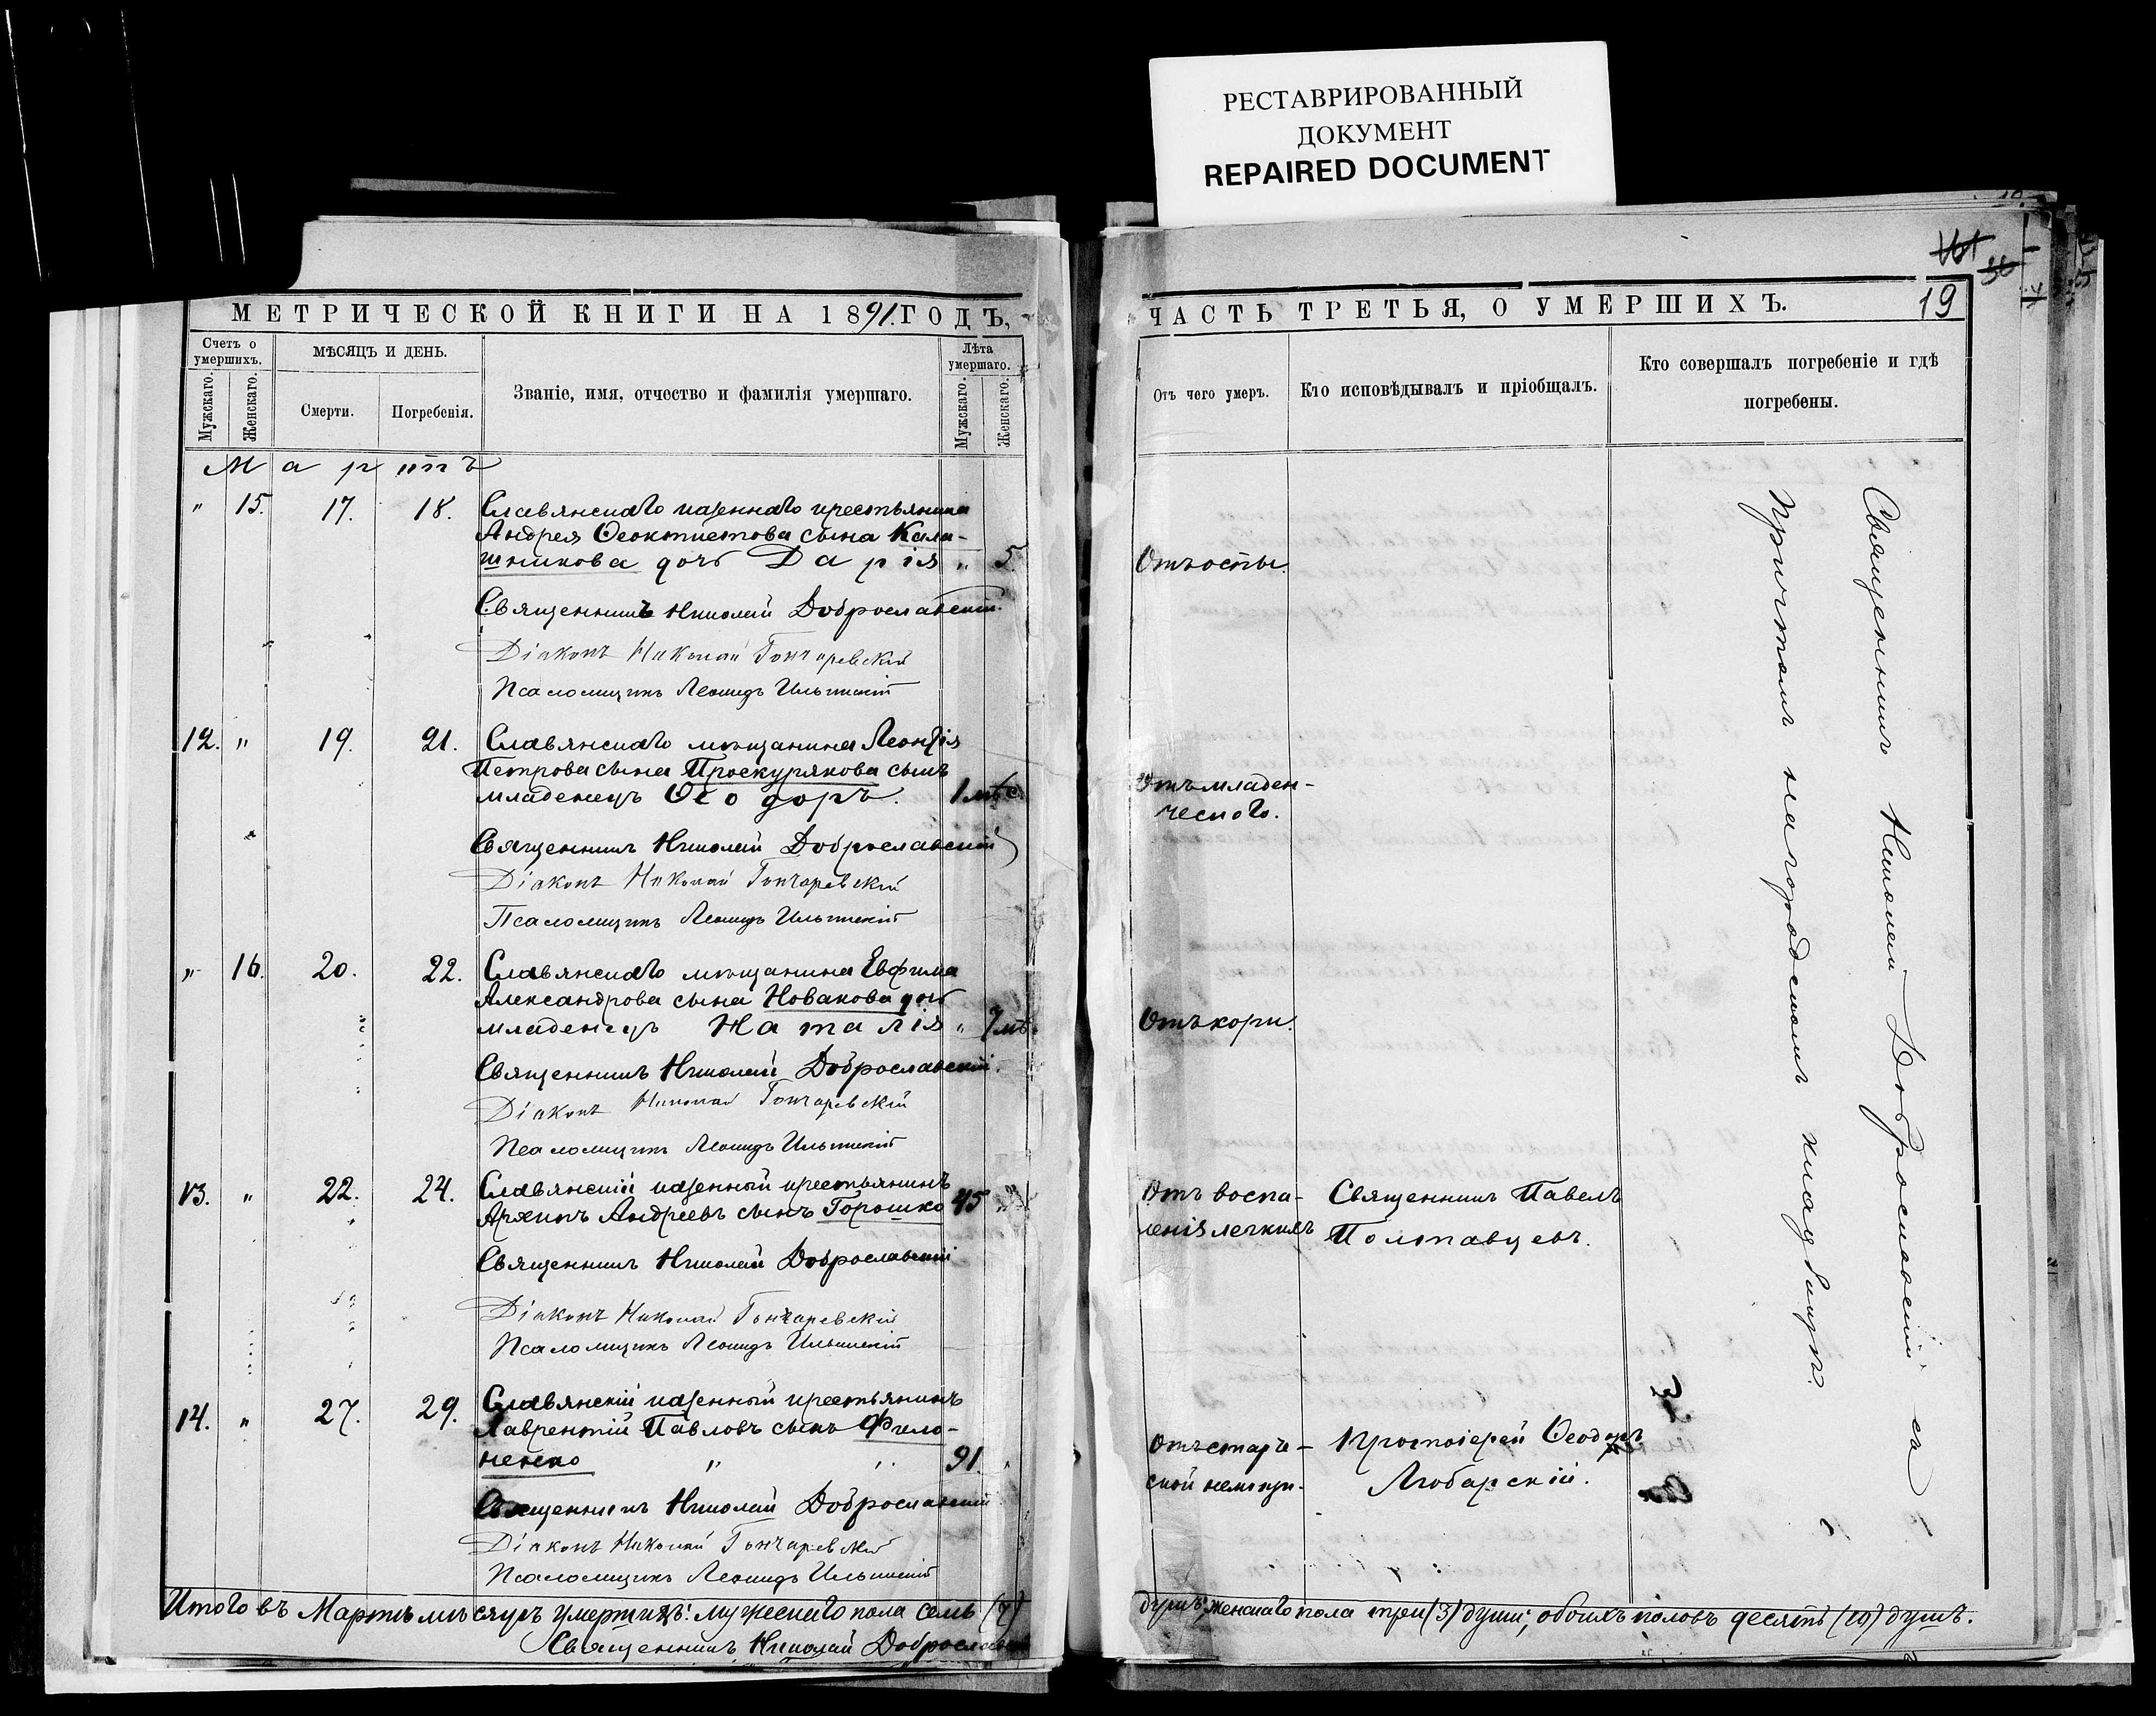 РЕСТАВРИРОВАННЫЙ
ДОКУМЕНТ
REPAIRED DOCUMENT
МЕТРИЧЕСКОЙ КНИГИ НА 1891 ГОДЪ,
Счетъ о умершихъ.
Мужскаго.
Женскаго.
МѢСЯЦЪ И ДЕНЬ.
Смерти.
Погребенія.
Званіе, имя, отчество и фамилія умершаго.
Лѣта умершаго.
Мужскаго.
Женскаго.
Мартъ
" 15. 17. 18. Славянскаго казеннаго крестьянина
Андрея Ѳеоктистова сына Кала-
шникова дочь Дарія " 5
Священникъ Николай Доброславскій
Діаконъ Николай Гончаревскій
Псаломщикъ Леонидъ Ильинскій
12. " 19. 21. Славянскаго мѣщанина Леонтія
Петрова сына Проскурякова сынъ
младенецъ Ѳеодоръ. 1 мѣс.
Священникъ Николай Доброславскій
Діаконъ Николай Гончаревскій
Псаломщикъ Леонидъ Ильинскій
" 16. 20. 22. Славянскаго мѣщанина Евфима
Александрова сына Новакова дочь
младенецъ Наталія " 7 мѣ.
Священникъ Николай Доброславскій
Діаконъ Николай Гончаревскій
Псаломщикъ Леонидъ Ильинскій
13. " 22. 24. Славянскій казенный крестьянинъ
Архипъ Андреевъ сынъ Горошко 45 "
Священникъ Николай Доброславскій
Діаконъ Николай Гончаревскій
Псаломщикъ Леонидъ Ильинскій
14. " 27. 29. Славянскій казенный крестьянинъ
Лаврентій Павловъ сынъ Фило-
ненко " " 91.
Священникъ Николай Доброславскій
Діаконъ Николай Гончаревскій
Псаломщикъ Леонидъ Ильинскій
Итого въ Мартѣ мѣсяцѣ умершихъ: мужескаго пола семь (7)
Священникъ Николай Доброславскій
ЧАСТЬ ТРЕТЬЯ, О УМЕРШИХЪ.
19
Отъ чего умеръ.
Кто исповѣдывалъ и пріобщалъ.
Кто совершалъ погребеніе и гдѣ
погребены.
Отъ оспы.
Отъ младен-
ческаго.
Отъ кори.
Отъ воспа- Священникъ Павелъ
ленія легкихъ Полтавцевъ.
Отъ старче- Протоіерей Ѳеодоръ
ской немощи. Любарскій.
Священникъ Николай Доброславскій съ
Причтомъ на городскомъ кладбищѣ.
душъ, женскаго пола три (3) души; обоихъ половъ десять (10) душъ.